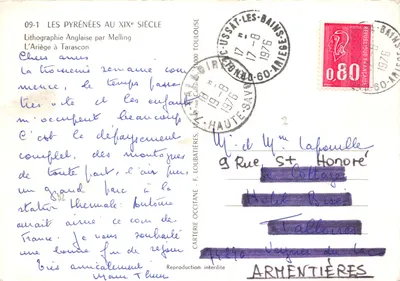 09-1 LES PYRÉNÉES AU XIXe SIÈCLE
Lithographie Anglaise par Melling
L'Ariège à Tarascon
Chers amis
La troisième semaine com
mence, le temps passe
très vite et les enfants
m'occupent beaucoup
C'est le dépaysement
complet, des montagnes
de toute part, l'air pur
un grand parc à la
station thermale. Antoine
aurait aimé ce coin de
France. Je vous souhaite
une bonne fin de séjour
Très amicalement
Reproduction interdite
CARTERIE OCCITANE
TOULOUSE
USSAT-LES-BAINS
17-8
1976
09 ARIEGE
HAUTE-SAVOIE
1976
0,80
M. et Mme Lafouille
9 Rue St Honoré
ARMENTIÈRES